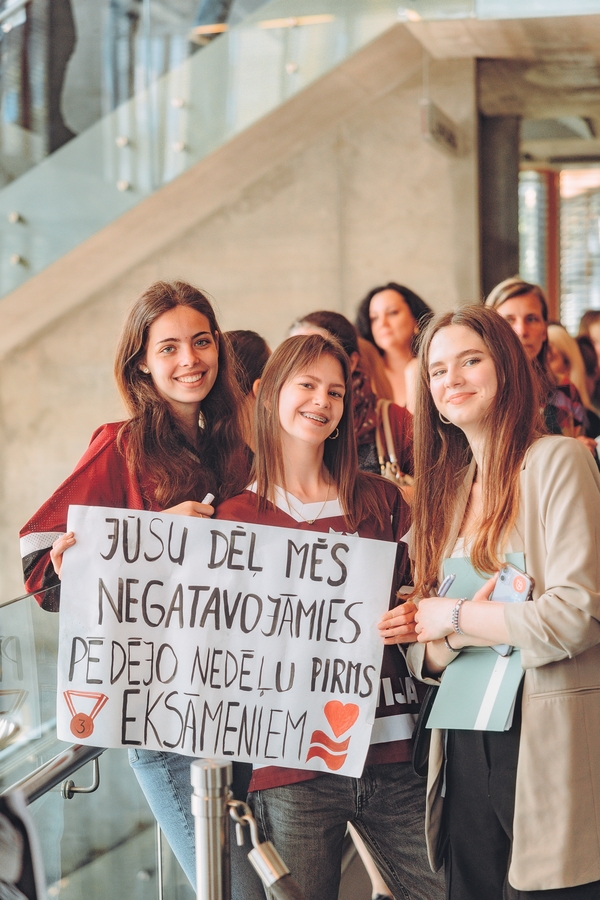 JŪSU DĒĻ MĒS
NEGATAVOJĀMIES
PĒDĒJO NEDĒĻU PIRMS
EKSĀMENIEM
3